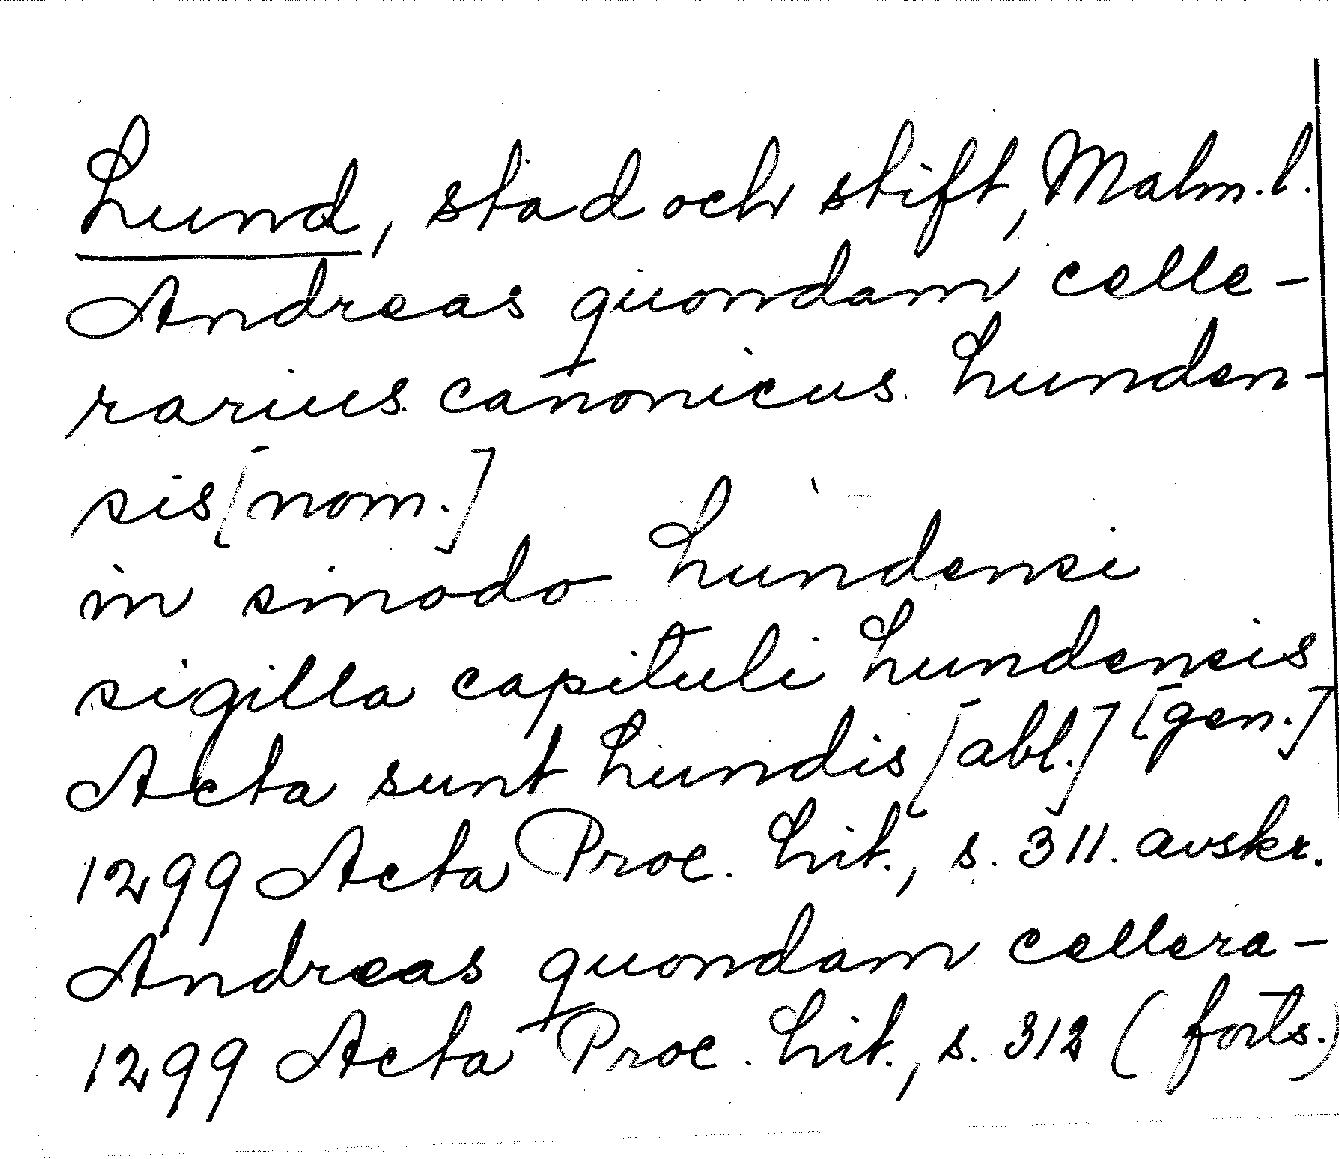 Lund, stad och stift, Malm. l.
Andreas quondam celle-
rarius canonicus Lunden-
sis [nom.]
in sinodo Lundensi
sigilla capituli Lundensis
[gen.]
Acta sunt Lundis [abl.]
1299 Acta Proc. Lit., s. 311. avskr.
Andreas quondam cellera-
1299 Acta Proc. Lit., s. 312 (forts.)